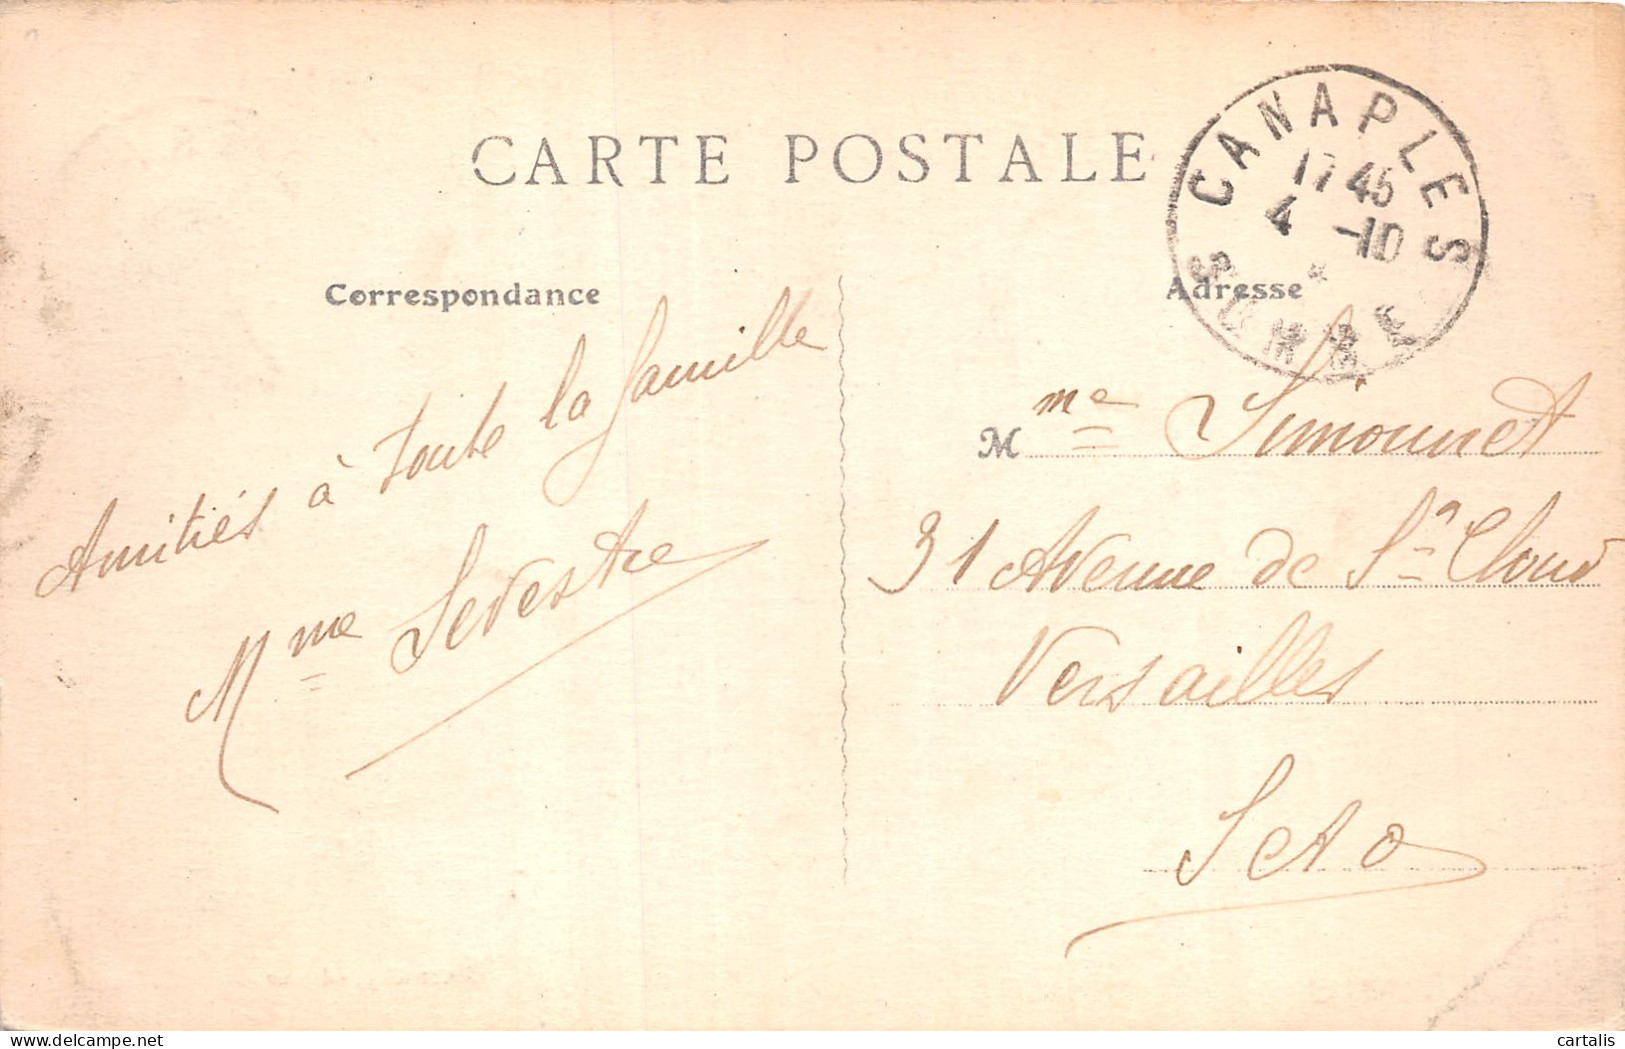 CARTE POSTALE
CANAPLES
17 45
4 -10
*
SOMME
Correspondance
Adresse
Amitiés à toute la famille
Mme Sevestre
Mme Simonnet
31 Avenue de St Cloud
Versailles
S et O
cartalis